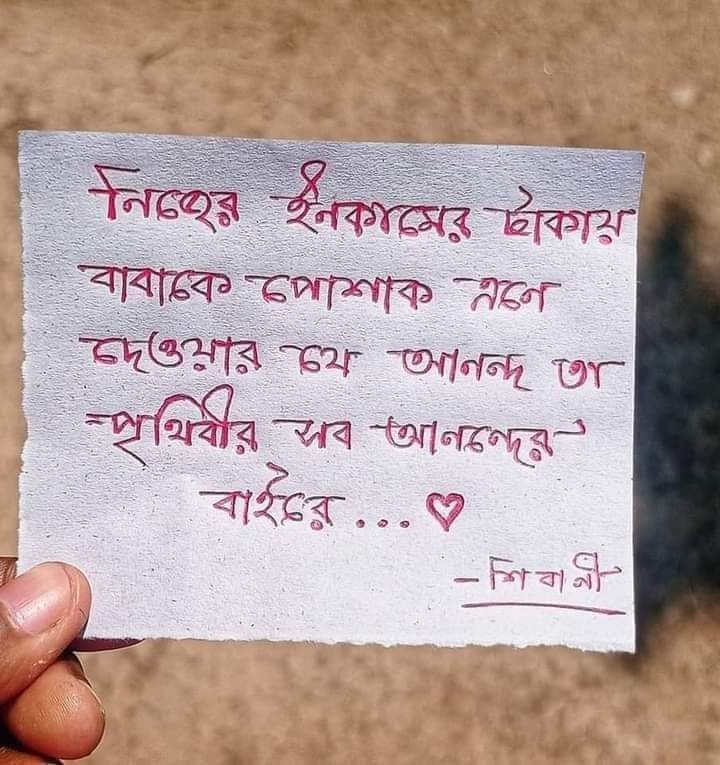 নিজের ইনকামের টাকায়
বাবাকে পোশাক এনে
দেওয়ার যে আনন্দ তা
পৃথিবীর সব আনন্দের
বাইরে... ♡
- শিবানী